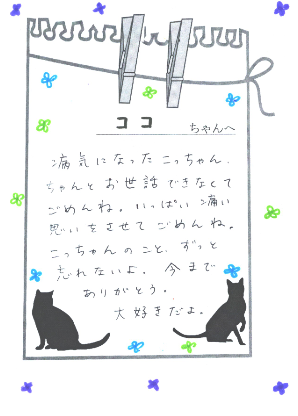 ココ ちゃんへ
病気になったこっちゃん、
ちゃんとお世話できなくて
ごめんね。いっぱい痛い
思いをさせてごめんね。
こっちゃんのこと、ずっと
忘れないよ。今まで
ありがとう。
大好きだよ。